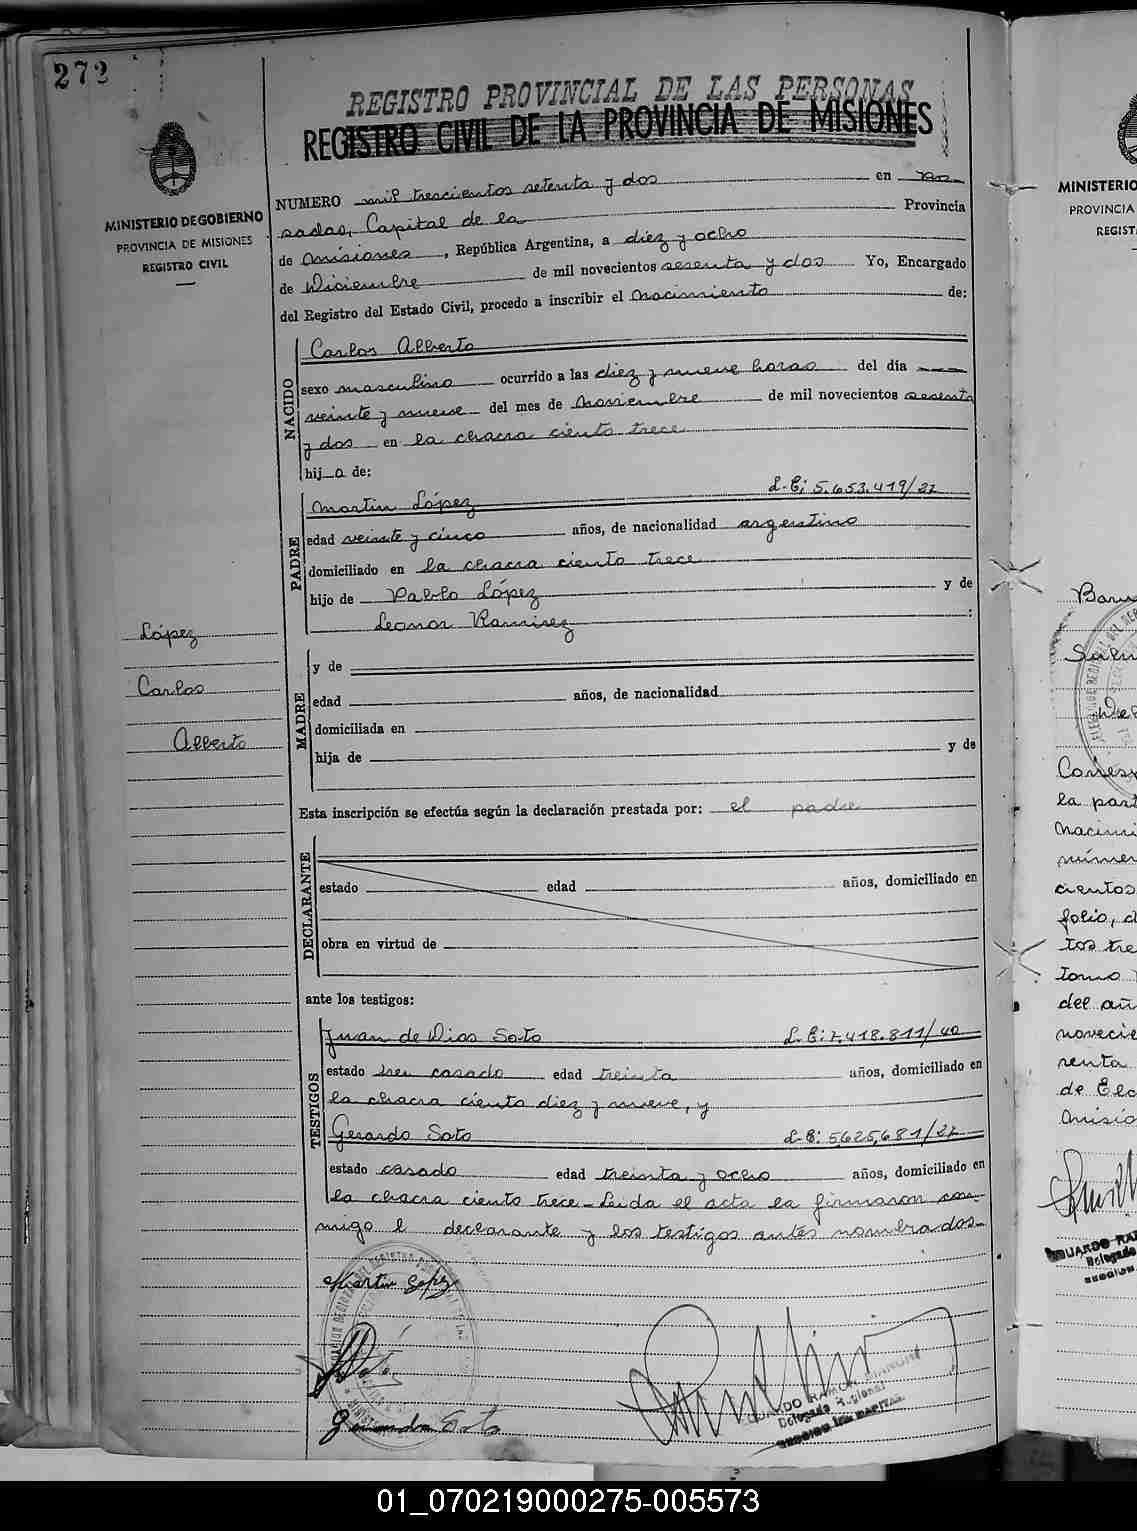 272
REGISTRO PROVINCIAL DE LAS PERSONAS
REGISTRO CIVIL DE LA PROVINCIA DE MISIONES
MINISTERIO DE GOBIERNO
PROVINCIA DE MISIONES
REGISTRO CIVIL
NUMERO mil trescientos setenta y dos en Po-
sadas, Capital de la Provincia
de Misiones, República Argentina, a diez y ocho
de Diciembre de mil novecientos sesenta y dos Yo, Encargado
del Registro del Estado Civil, procedo a inscribir el Nacimiento de:
NACIDO
Carlos Alberto
sexo masculino ocurrido a las diez y nueve horas del día
veinte y nueve del mes de Noviembre de mil novecientos sesenta
y dos en la chacra ciento trece
hij o de:
PADRE
Martin López L.E; 5.653.419/27
edad veinte y cinco años, de nacionalidad argentino
domiciliado en la chacra ciento trece
hijo de Pablo López y de
Leonor Ramirez :
López
Carlos
Alberto
MADRE
y de
edad años, de nacionalidad
domiciliada en
hija de y de
Esta inscripción se efectúa según la declaración prestada por: el padre
DECLARANTE
estado edad años, domiciliado en
obra en virtud de
ante los testigos:
TESTIGOS
Juan de Dios Soto L.E: 7.418.811/40
estado casado edad treinta años, domiciliado en
la chacra ciento diez y nueve, y
Gerardo Soto L.E: 5,625,681/27
estado casado edad treinta y ocho años, domiciliado en
la chacra ciento trece - Leida el acta la firmaron con-
migo l declarante y los testigos antes nombrados-
Martin Lopez
Gerardo Soto
Delegado Regional
MINISTERIO
PROVINCIA
REGIST
la part
nacimi
númer
cientos
folio, d
tos tre
tomo
del añ
novecie
renta
de Ele
Misio
Delegado
01_070219000275-005573